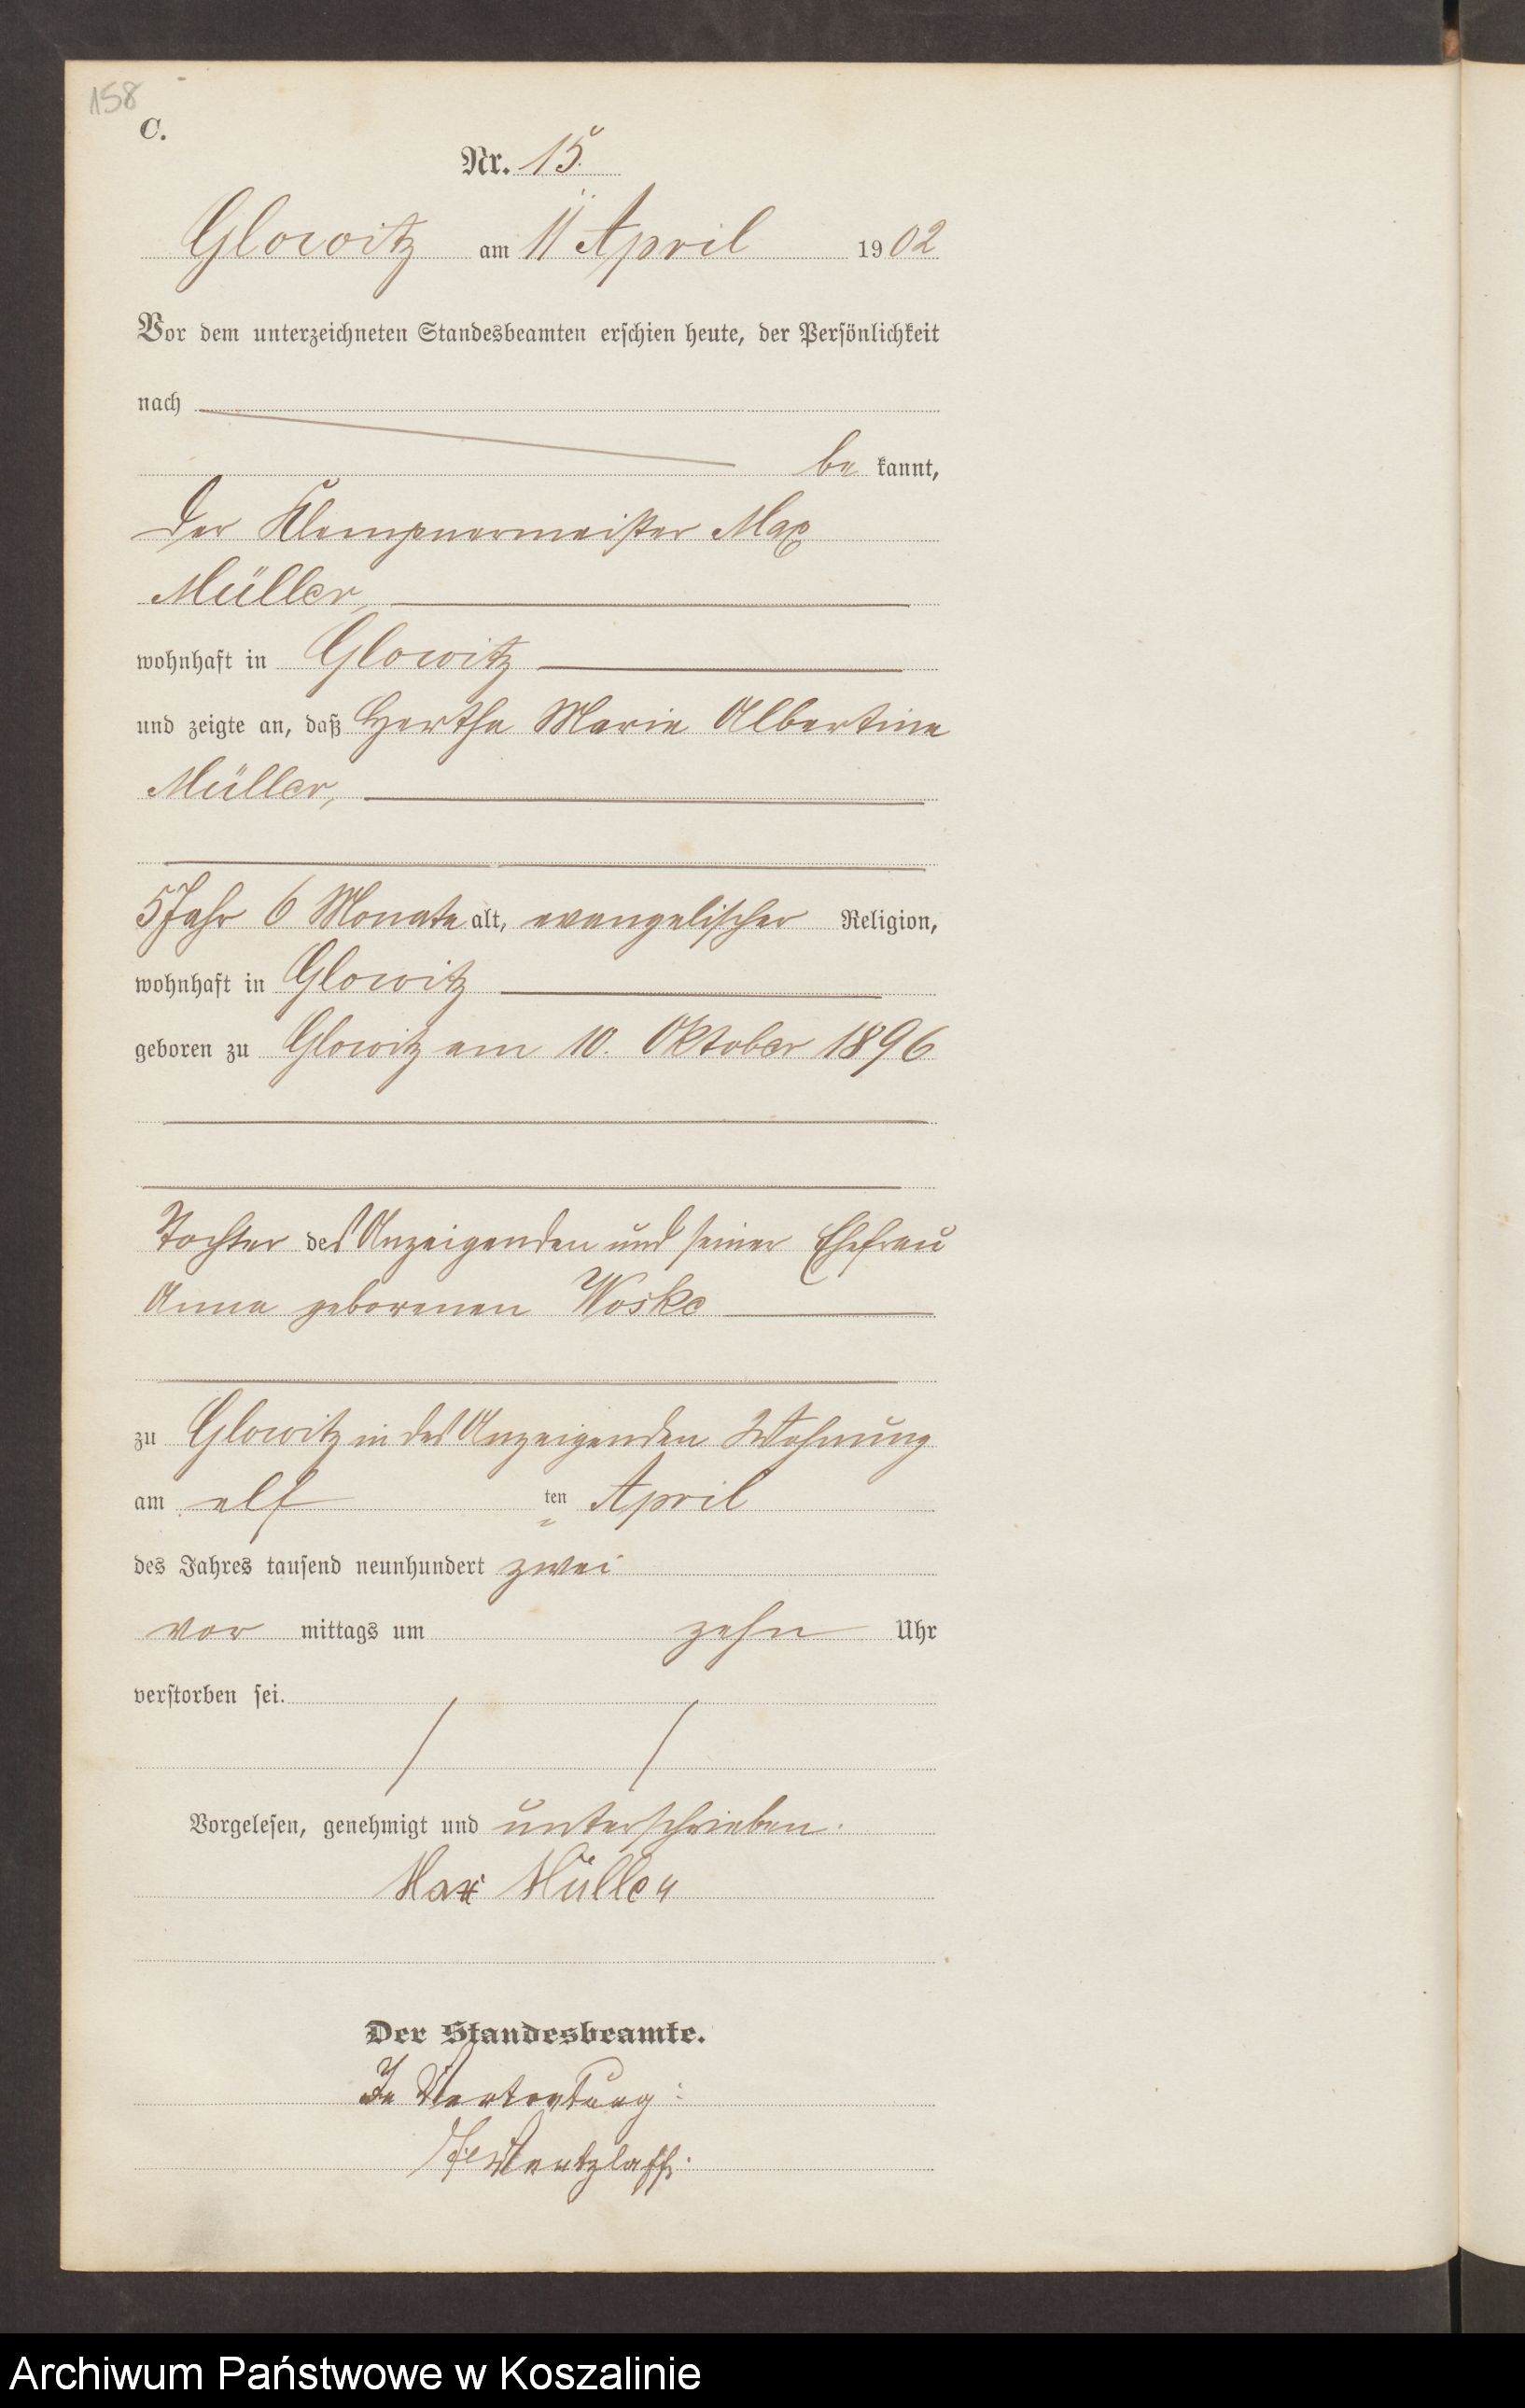 158
C.
Nr. 15.
Glowitz am 11 April 1902
Vor dem unterzeichneten Standesbeamten erschien heute, der Persönlichkeit
nach
be kannt,
der Klempnermeister Max
Müller,
wohnhaft in Glowitz
und zeigte an, daß Hertha Marie Albertine
Müller,
5 Jahr 6 Monate alt, evangelischer Religion,
wohnhaft in Glowitz
geboren zu Glowitz am 10. Oktober 1896
Tochter des Anzeigenden und seiner Ehefrau
Anna geborenen Woske
zu Glowitz in des Anzeigenden Wohnung
am elf ten April
des Jahres tausend neunhundert zwei
vor mittags um zehn Uhr
verstorben sei.
Vorgelesen, genehmigt und unterschrieben.
Max Müller
Der Standesbeamte.
In Vertretung:
Archiwum Państwowe w Koszalinie